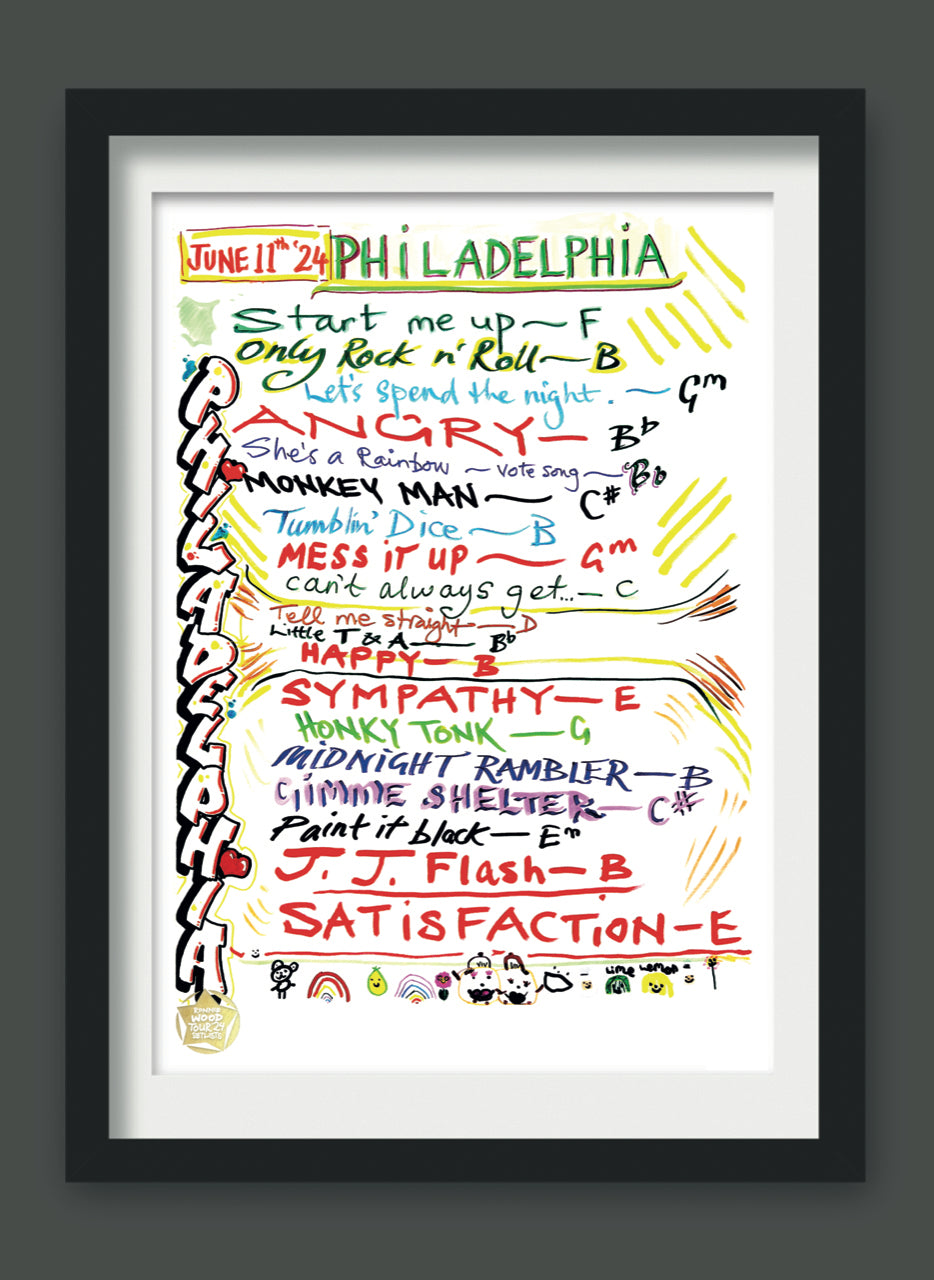 JUNE 11th '24 PHiLADELPHiA
Start me up~F
Only Rock n' Roll—B
Let's spend the night. ~ Gm
ANGRY— Bb
She's a Rainbow ~ vote song ~ Bb
MONKEY MAN — C#
Tumblin' Dice — B
MESS iT UP — Gm
can't always get...— C
Tell me straight — D
Little T & A — Bb
HAPPY— B
SYMPATHY— E
HONKY TONK — G
MiDNiGHT RAMBLER— B
GiMME SHELTER— C#
Paint it black— Em
J. J. Flash— B
SATiSFACTiON-E
PHILADELPHIA
Lime Lemon
RONNIE
WOOD
TOUR 24
SETLISTS